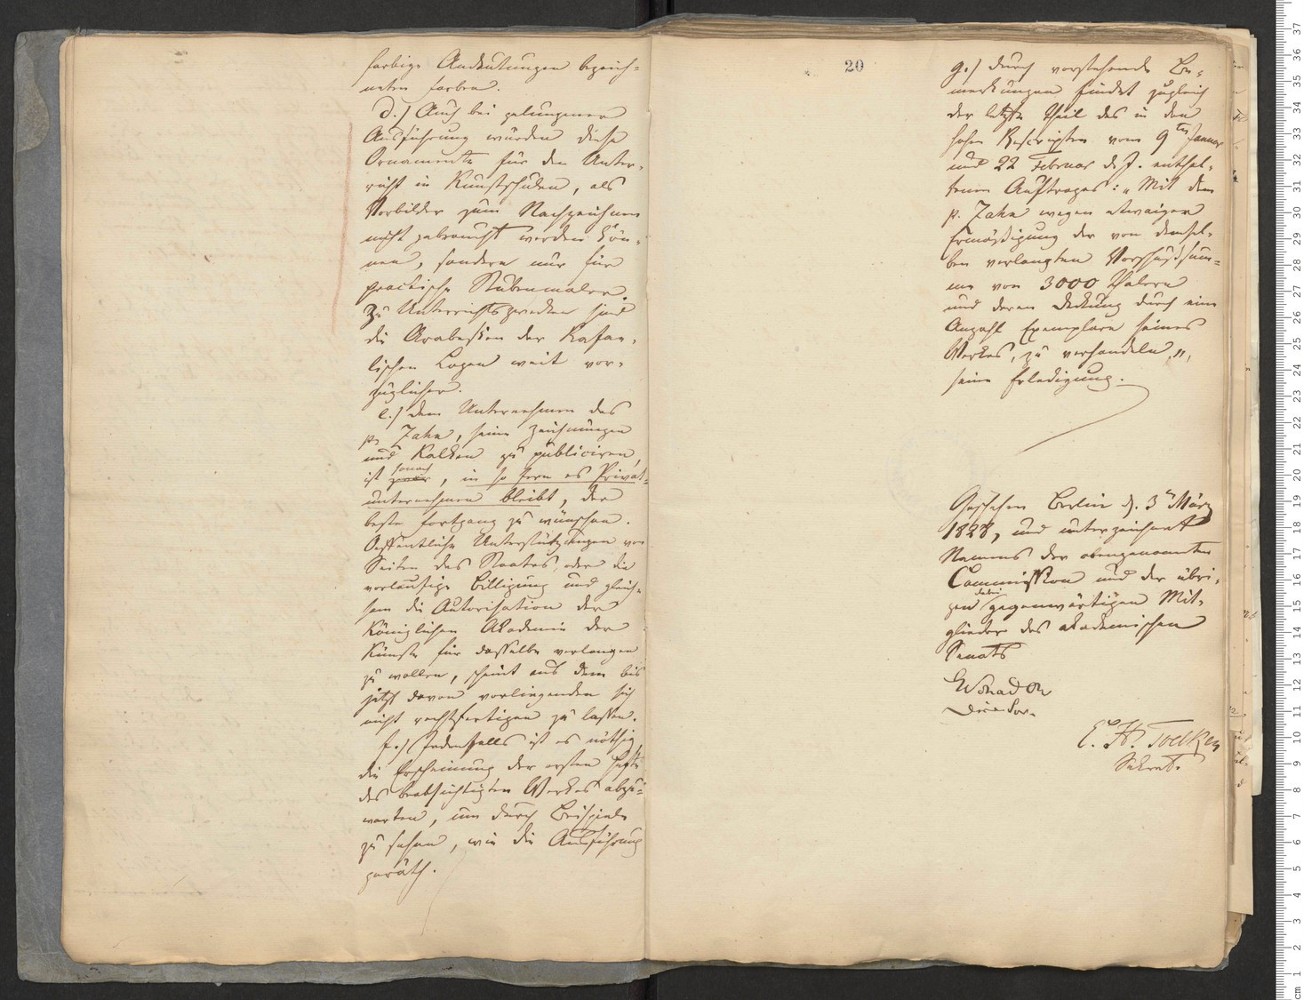 farbige Andeutungen bezeich-
neten Farben.
d.) Auch bei gelungener
Ausführung würden diese
Ornamente für den Unter-
richt in Kunstschulen, als
Vorbilder zum Nachzeichnen
nicht gebraucht werden kön-
nen, sondern nur für
practische Stubenmaler.
Zu Unterrichtszwecken sind
die Arabesken der Rafae-
lischen Logen weit vor-
züglicher.
e.) dem Unternehmen des
p. Zahn, seine Zeichnungen
und Kalken zu publiciren,
ist sonach, in so fern es Privat-
unternehmen bleibt, der
beste Fortgang zu wünschen.
Oeffentliche Unterstützungen von
Seiten des Staates oder die
vorläufige Billigung und gleich-
sam die Autorisation der
Königlichen Akademie der
Künste für dasselbe verlangen
zu wollen, scheint aus dem bis
jetzt davon vorliegenden sich
nicht rechtfertigen zu lassen.
f.) Jedenfalls ist es nöthig
die Erscheinung der ersten Hefte
des beabsichtigten Werkes abzu-
warten, um durch Beispiele
zu sehen, wie die Ausführung
geräth.
20
g.) durch vorstehende Be-
merkungen findet zugleich
der letzte Theil des in den
hohen Rescripten vom 9ten Januar
und 22 Februar d. J. enthal-
tenen Auftrages: "Mit dem
p. Zahn wegen etwaiger
Ermäßigung der von demsel-
ben verlangten Vorschußsum-
me von 3000 Thalern
und deren Deckung durch eine
Anzahl Exemplare seines
Werkes, zu verhandeln",
seine Erledigung.
Geschehen Berlin d. 3n März
1828, und unterzeichnet
Namens der obengenannten
Commission und der übri-
gen dabei gegenwärtigen Mit-
glieder des akademischen
Senats
GSchadow
Director.
E. H. Toelken
Sekret.